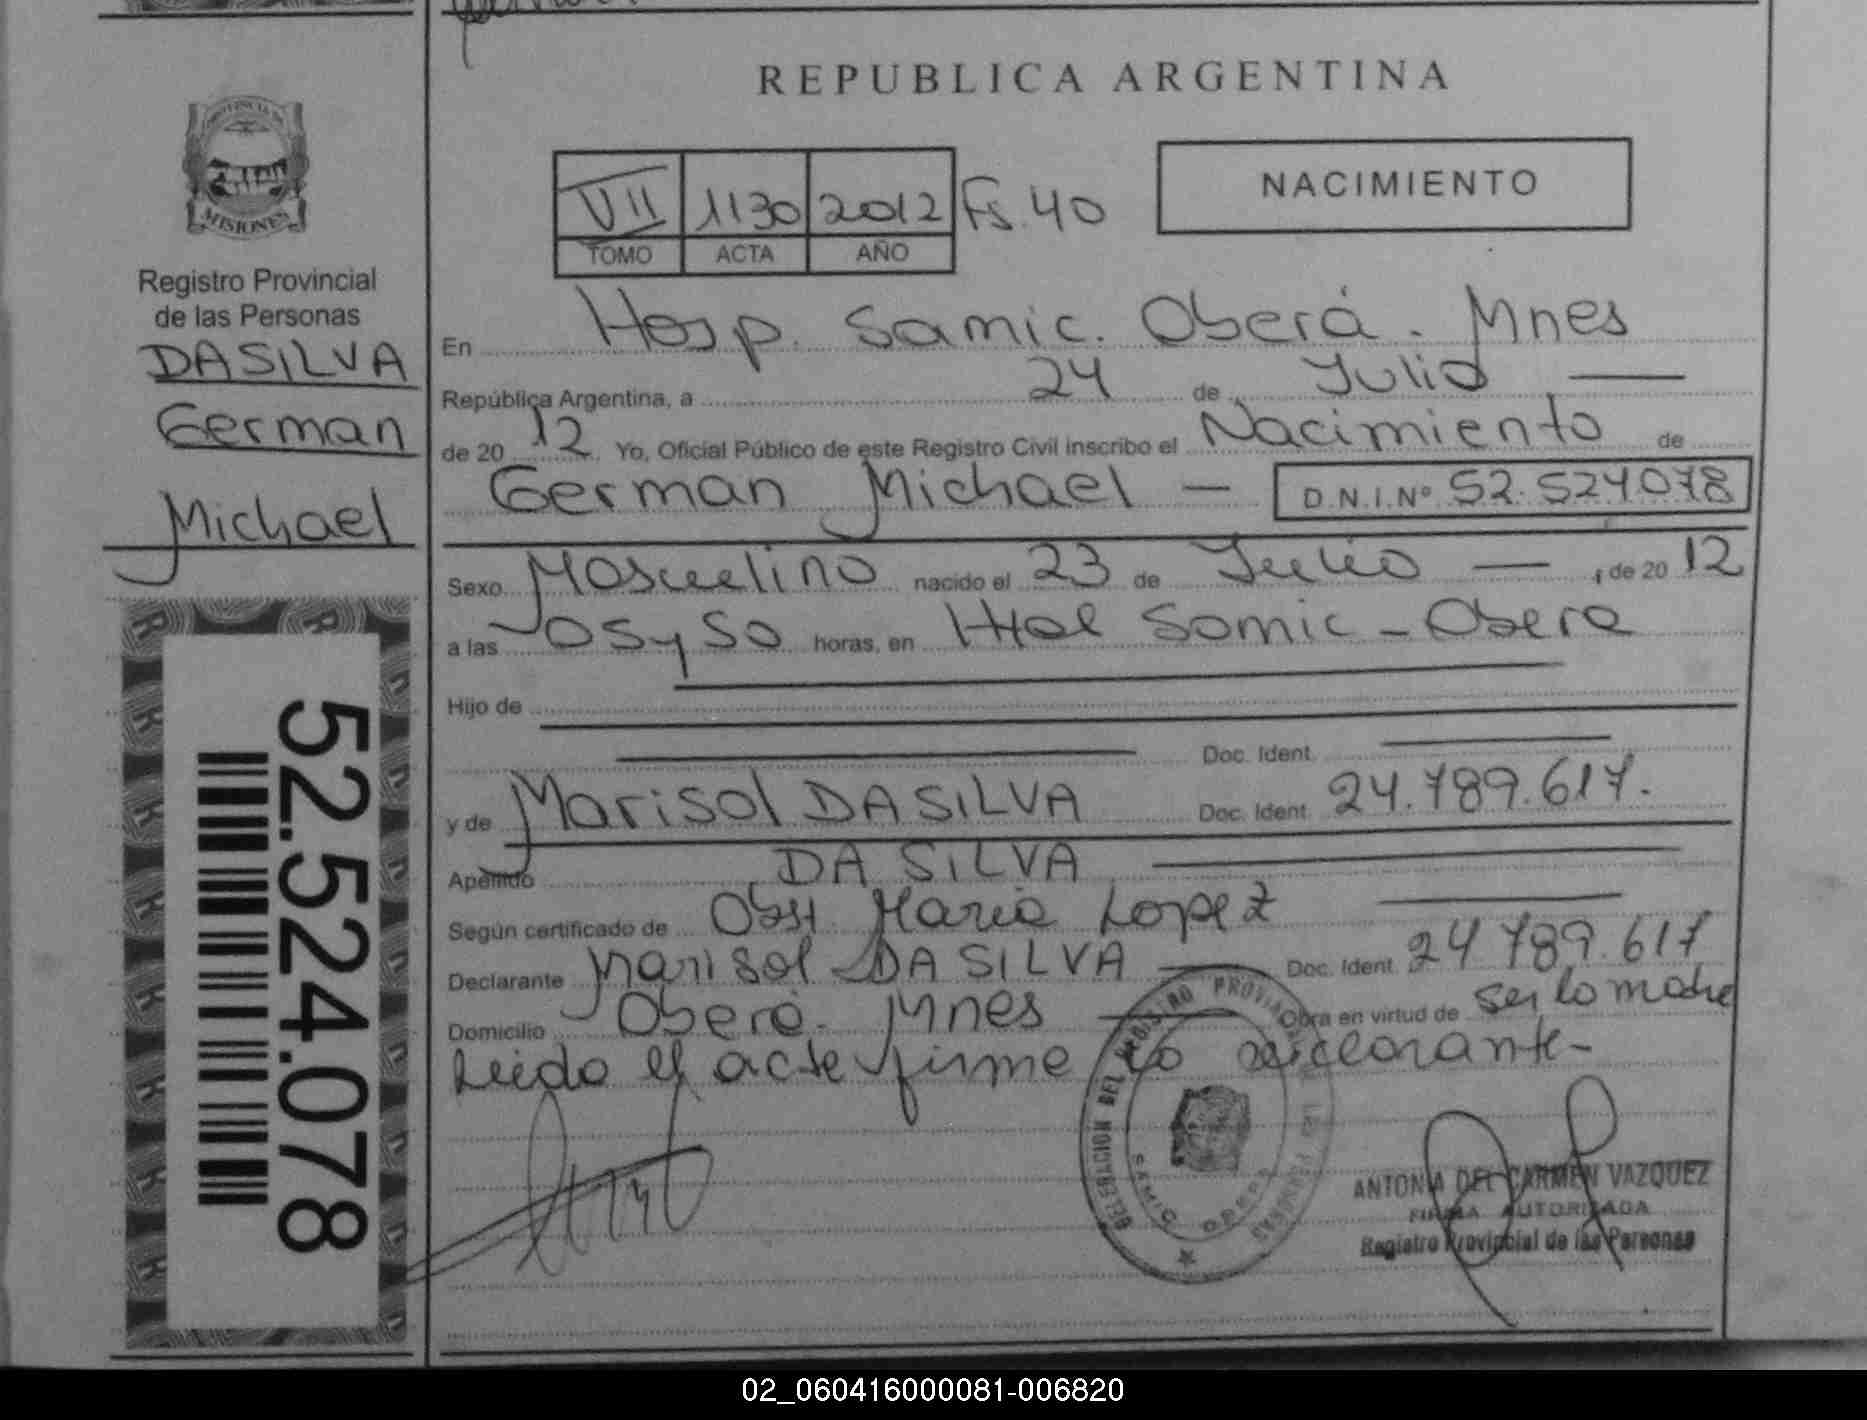 REPUBLICA ARGENTINA
PROVINCIA DE
MISIONES
Registro Provincial
de las Personas
DA SILVA
German
Michael
52.524.078
VII 1130 2012 Fs. 40
TOMO ACTA AÑO
NACIMIENTO
En Hosp. Samic. Oberá. Mnes
República Argentina, a 24 de Julio
de 20 12 Yo, Oficial Público de este Registro Civil inscribo el Nacimiento de
German Michael — D.N.I.Nº 52.524078
Sexo Masculino nacido el 23 de Julio — , de 20 12
a las 05 y 50 horas, en Htal Samic - Obera
Hijo de
Doc. Ident.
y de Marisol DA SILVA Doc. Ident. 24.789.617.
Apellido DA SILVA
Según certificado de Obst Maria Lopez
Declarante Marisol DA SILVA — Doc. Ident. 24 789.617
Domicilio Oberá. Mnes — Obra en virtud de ser la madre
Leido el acta firma la declarante-
DELEGACION DEL REGISTRO PROVINCIAL DE LAS PERSONAS
SAMIC OBERA
ANTONIA DEL CARMEN VAZQUEZ
FIRMA AUTORIZADA
Registro Provincial de las Personas
02_060416000081-006820